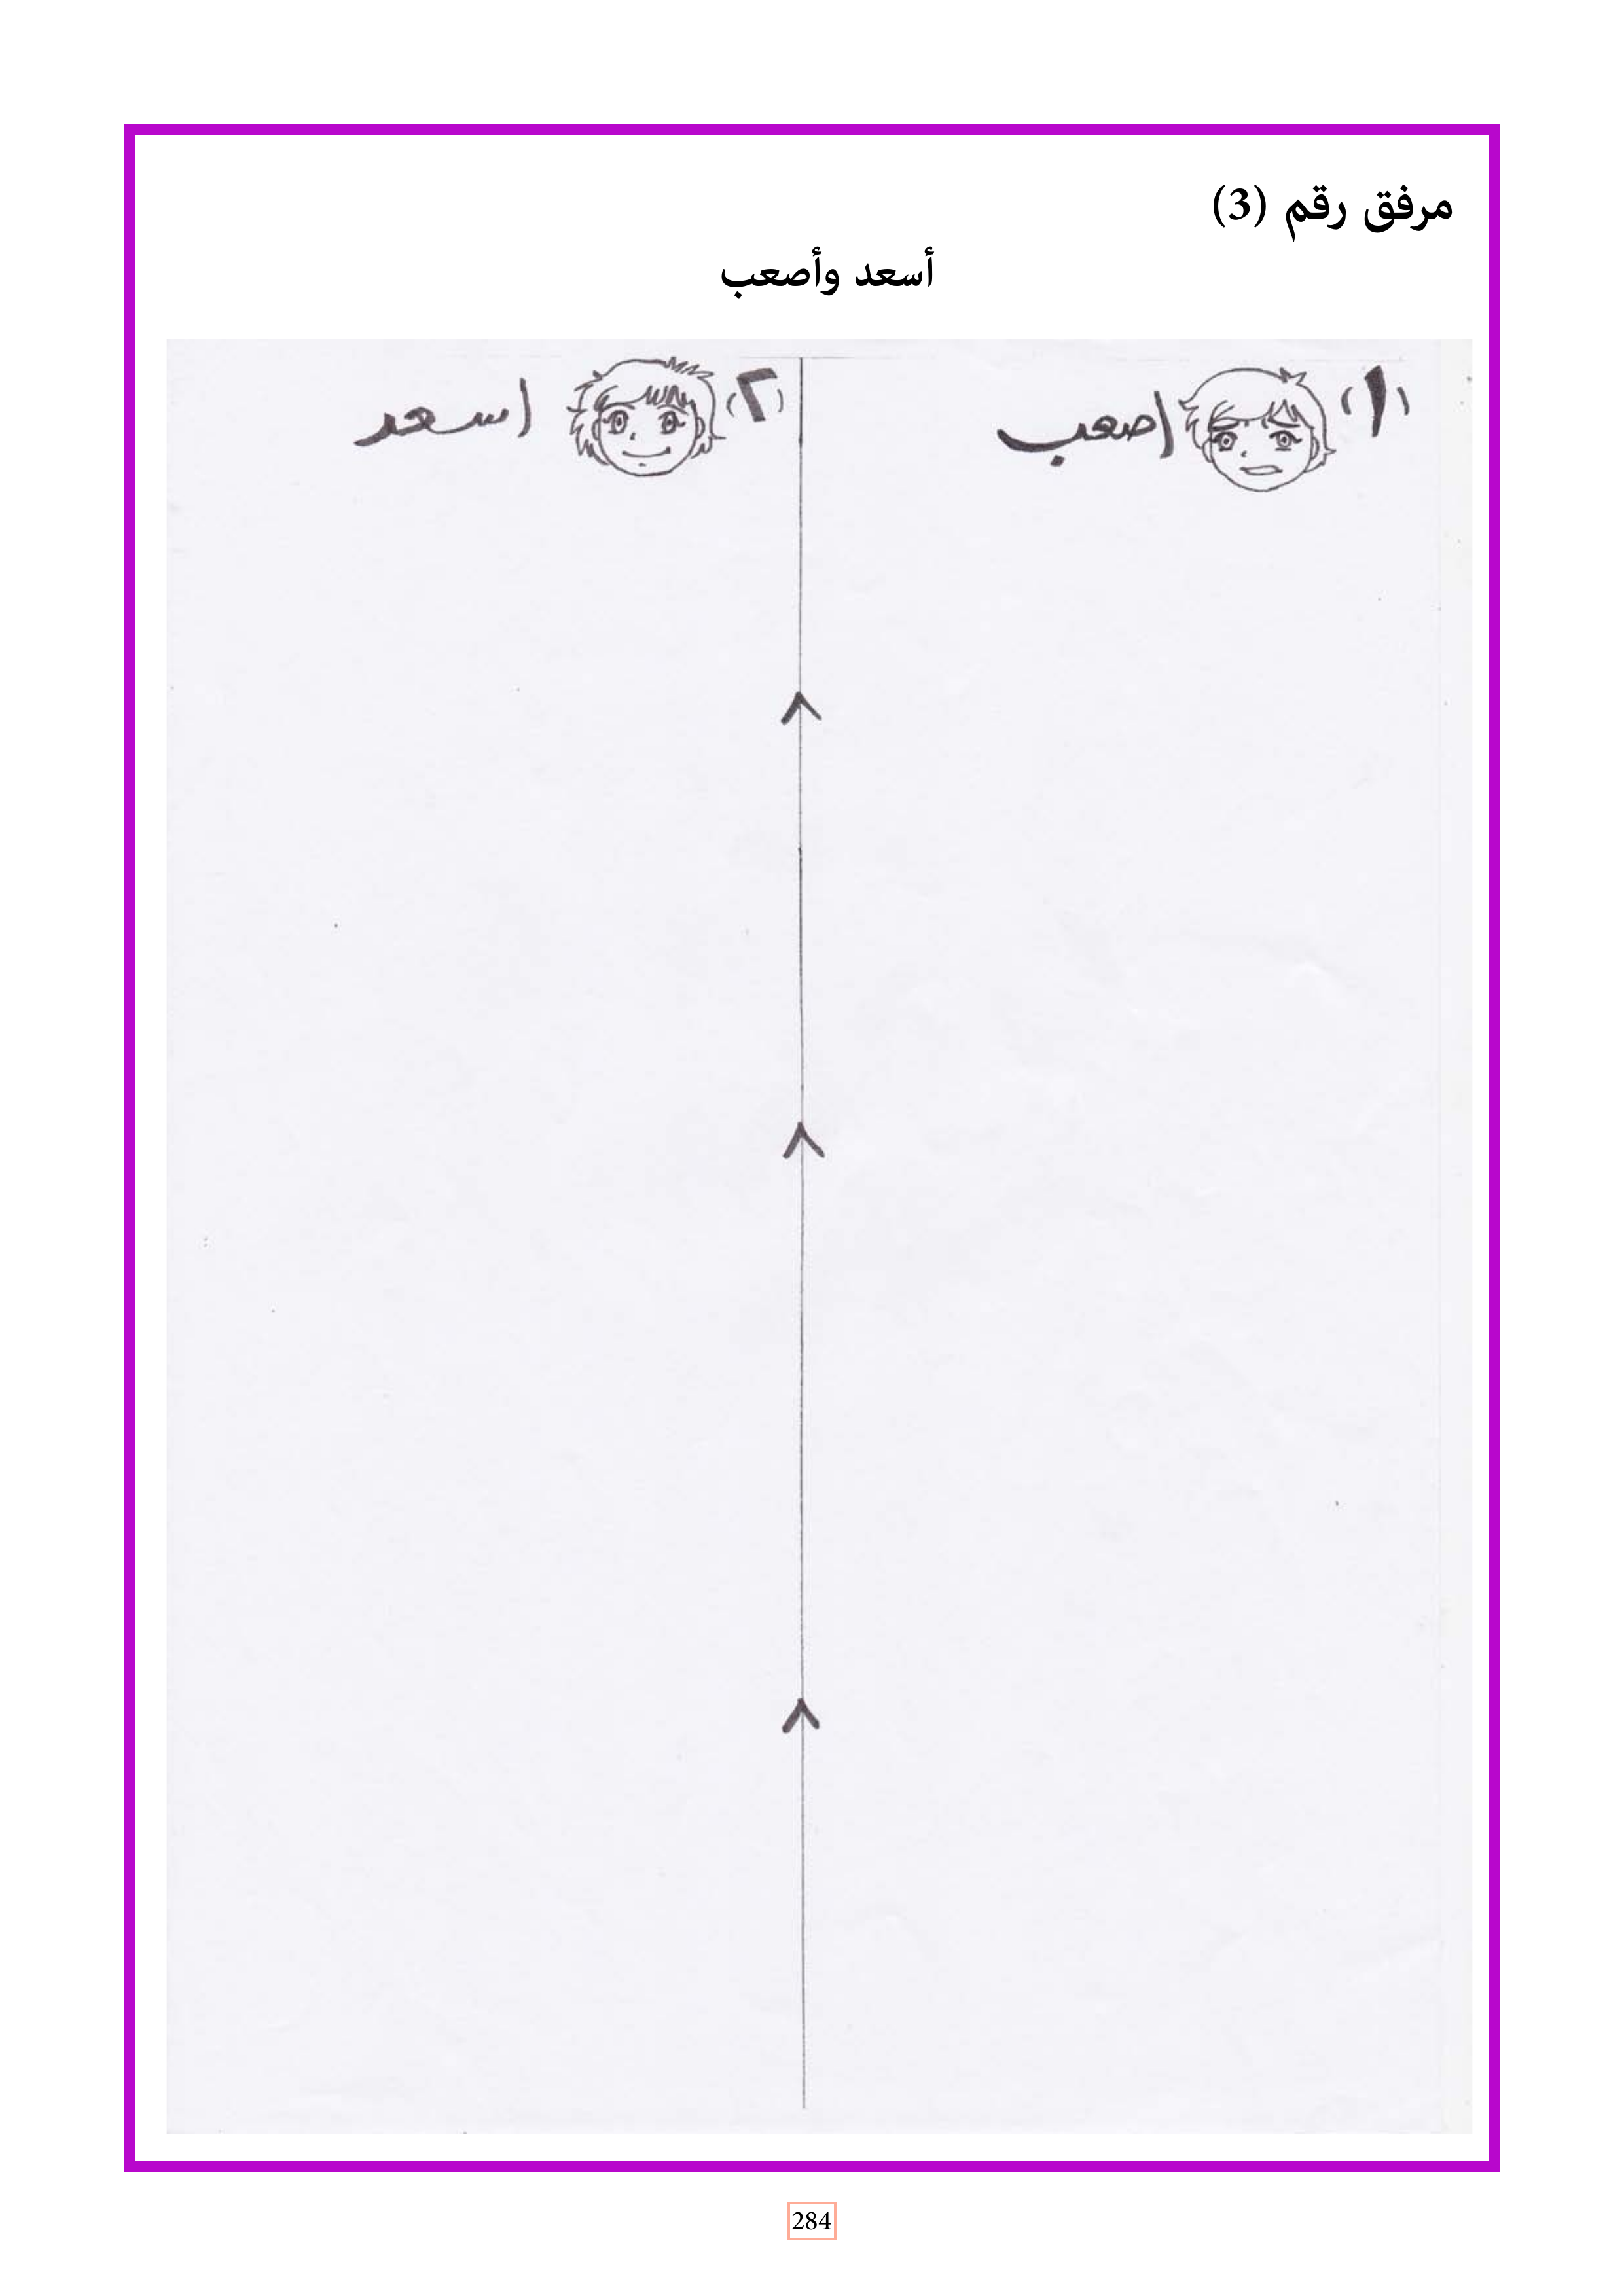 مرفق رقم (3)
أسعد وأصعب
(١) اصعب
(٢) اسعد
284